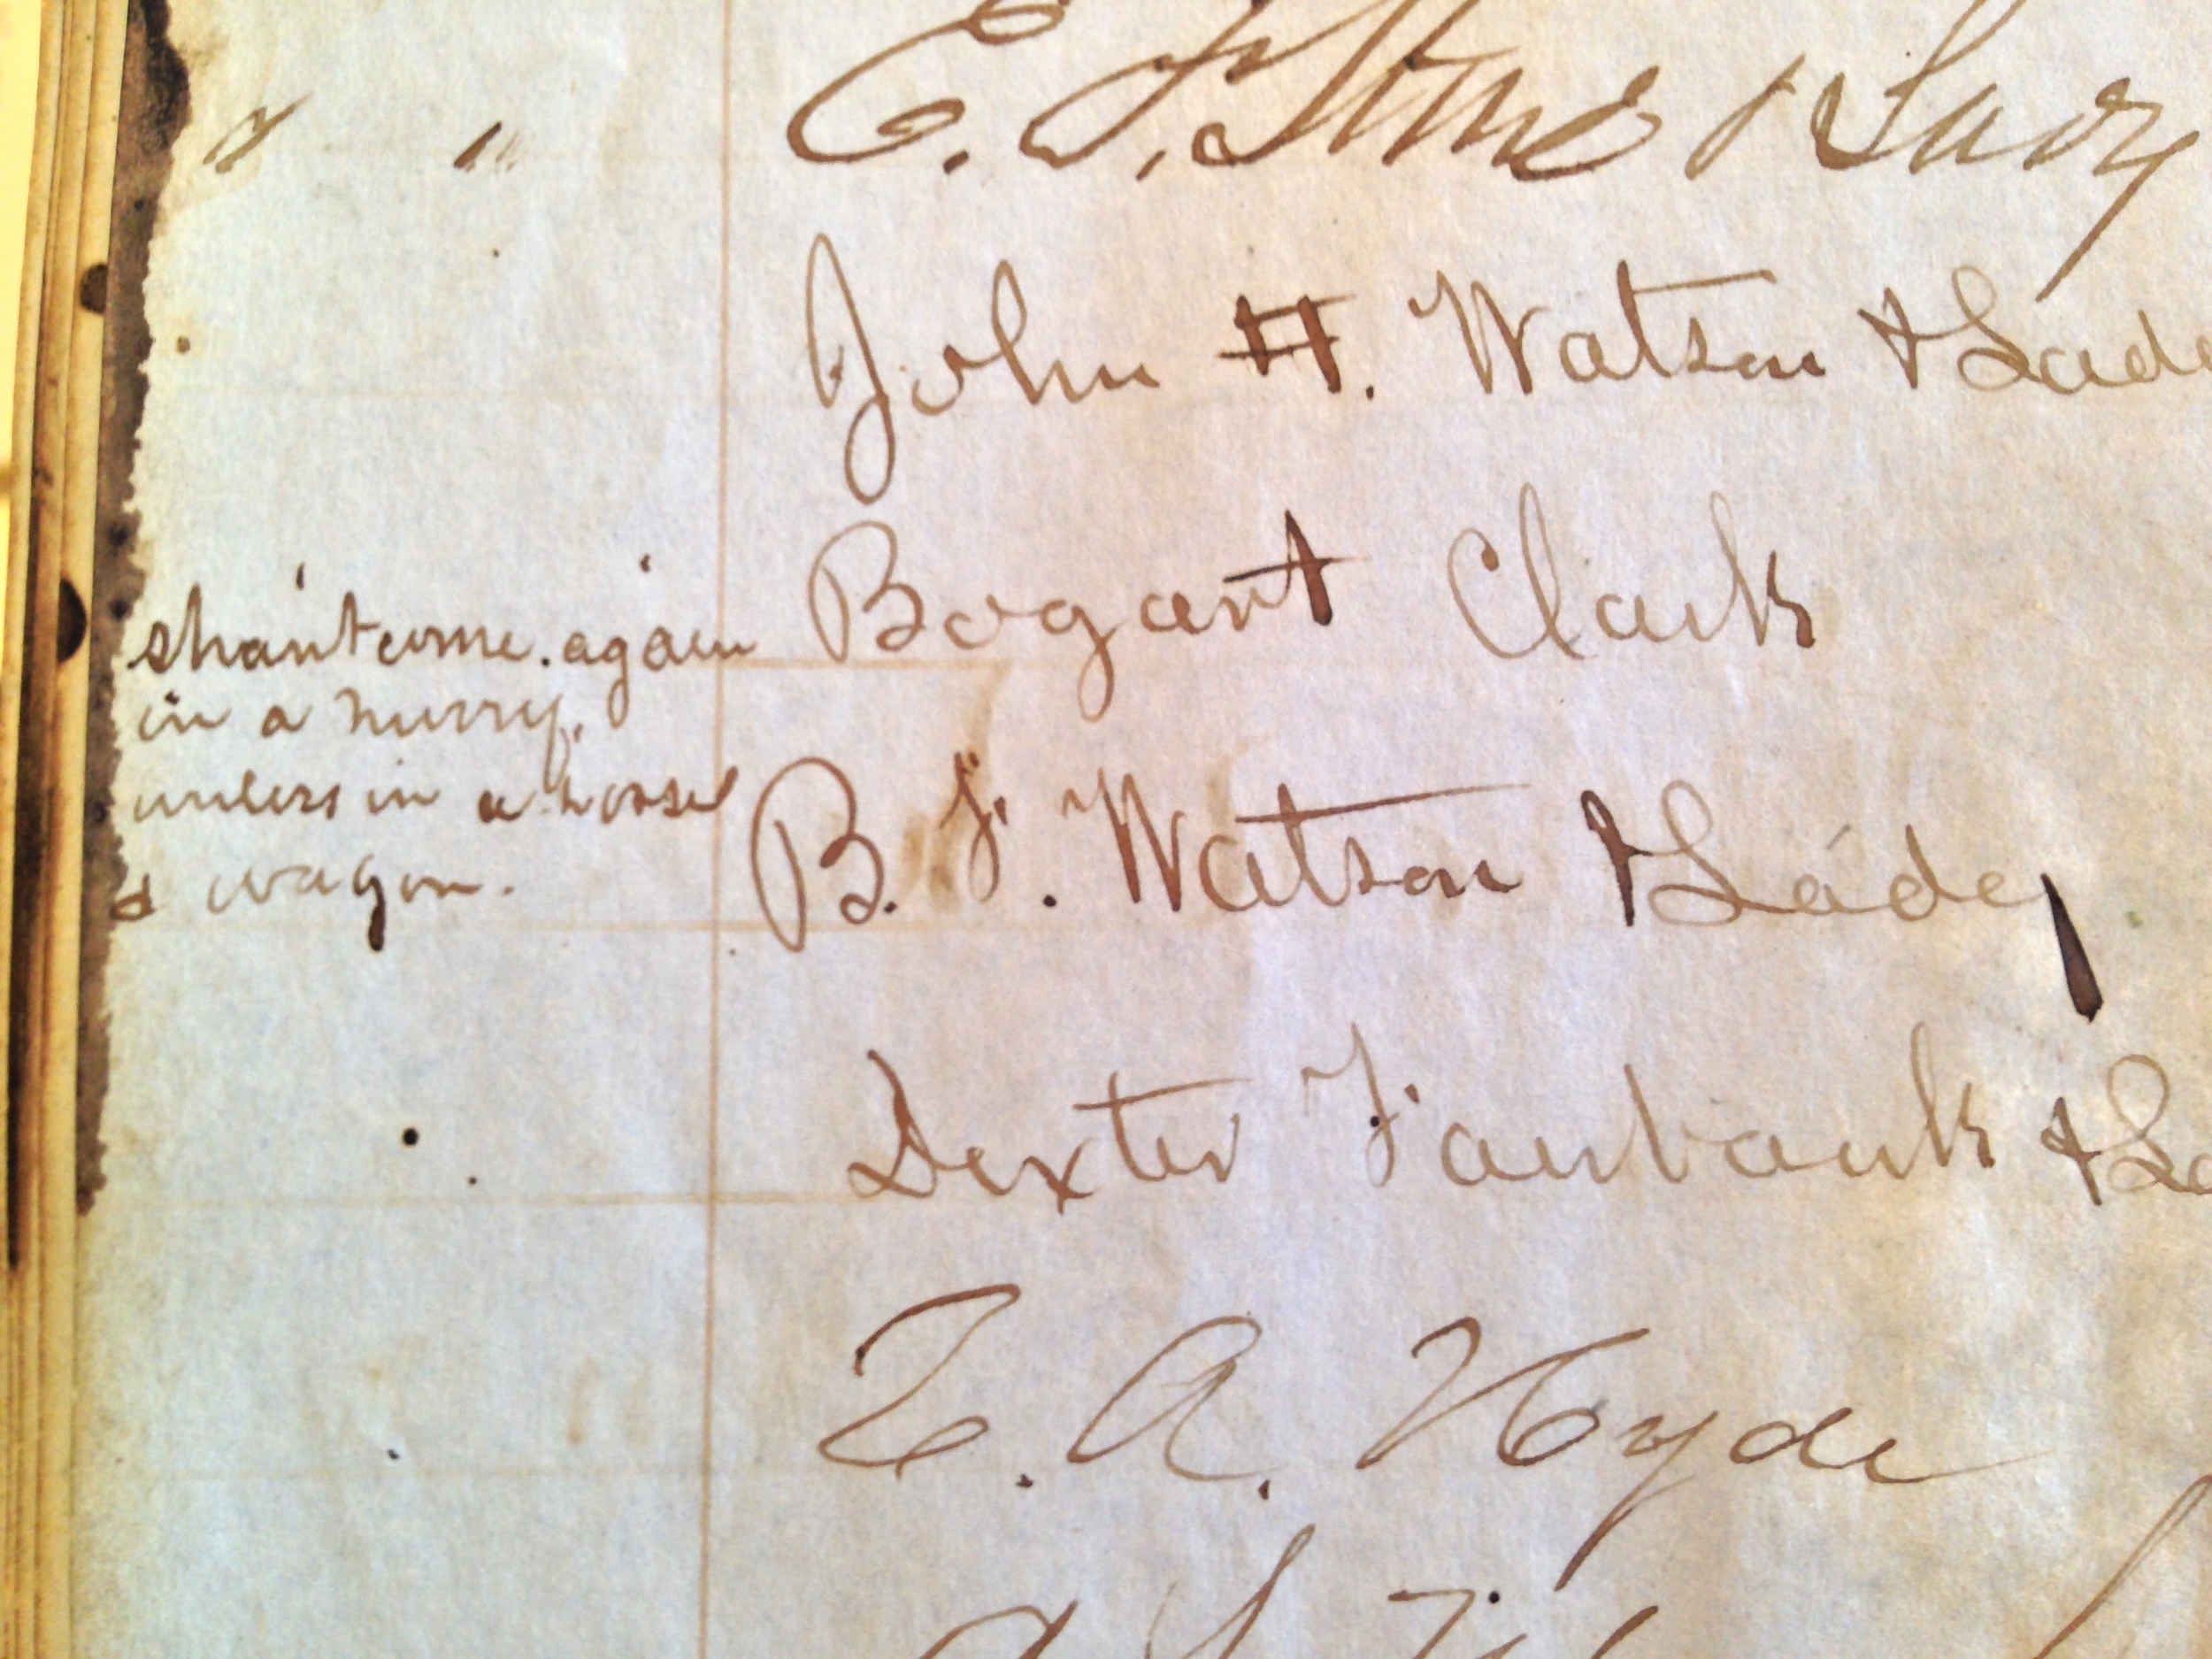 " " E. F. Stone & Lady
John H. Watson & Lade
Bogart Clark
shan't come again
in a hurry,
unless in a horse
& wagon.
B. F. Watson & Lady
Dexter Fairbank & La
T. A. Hyde